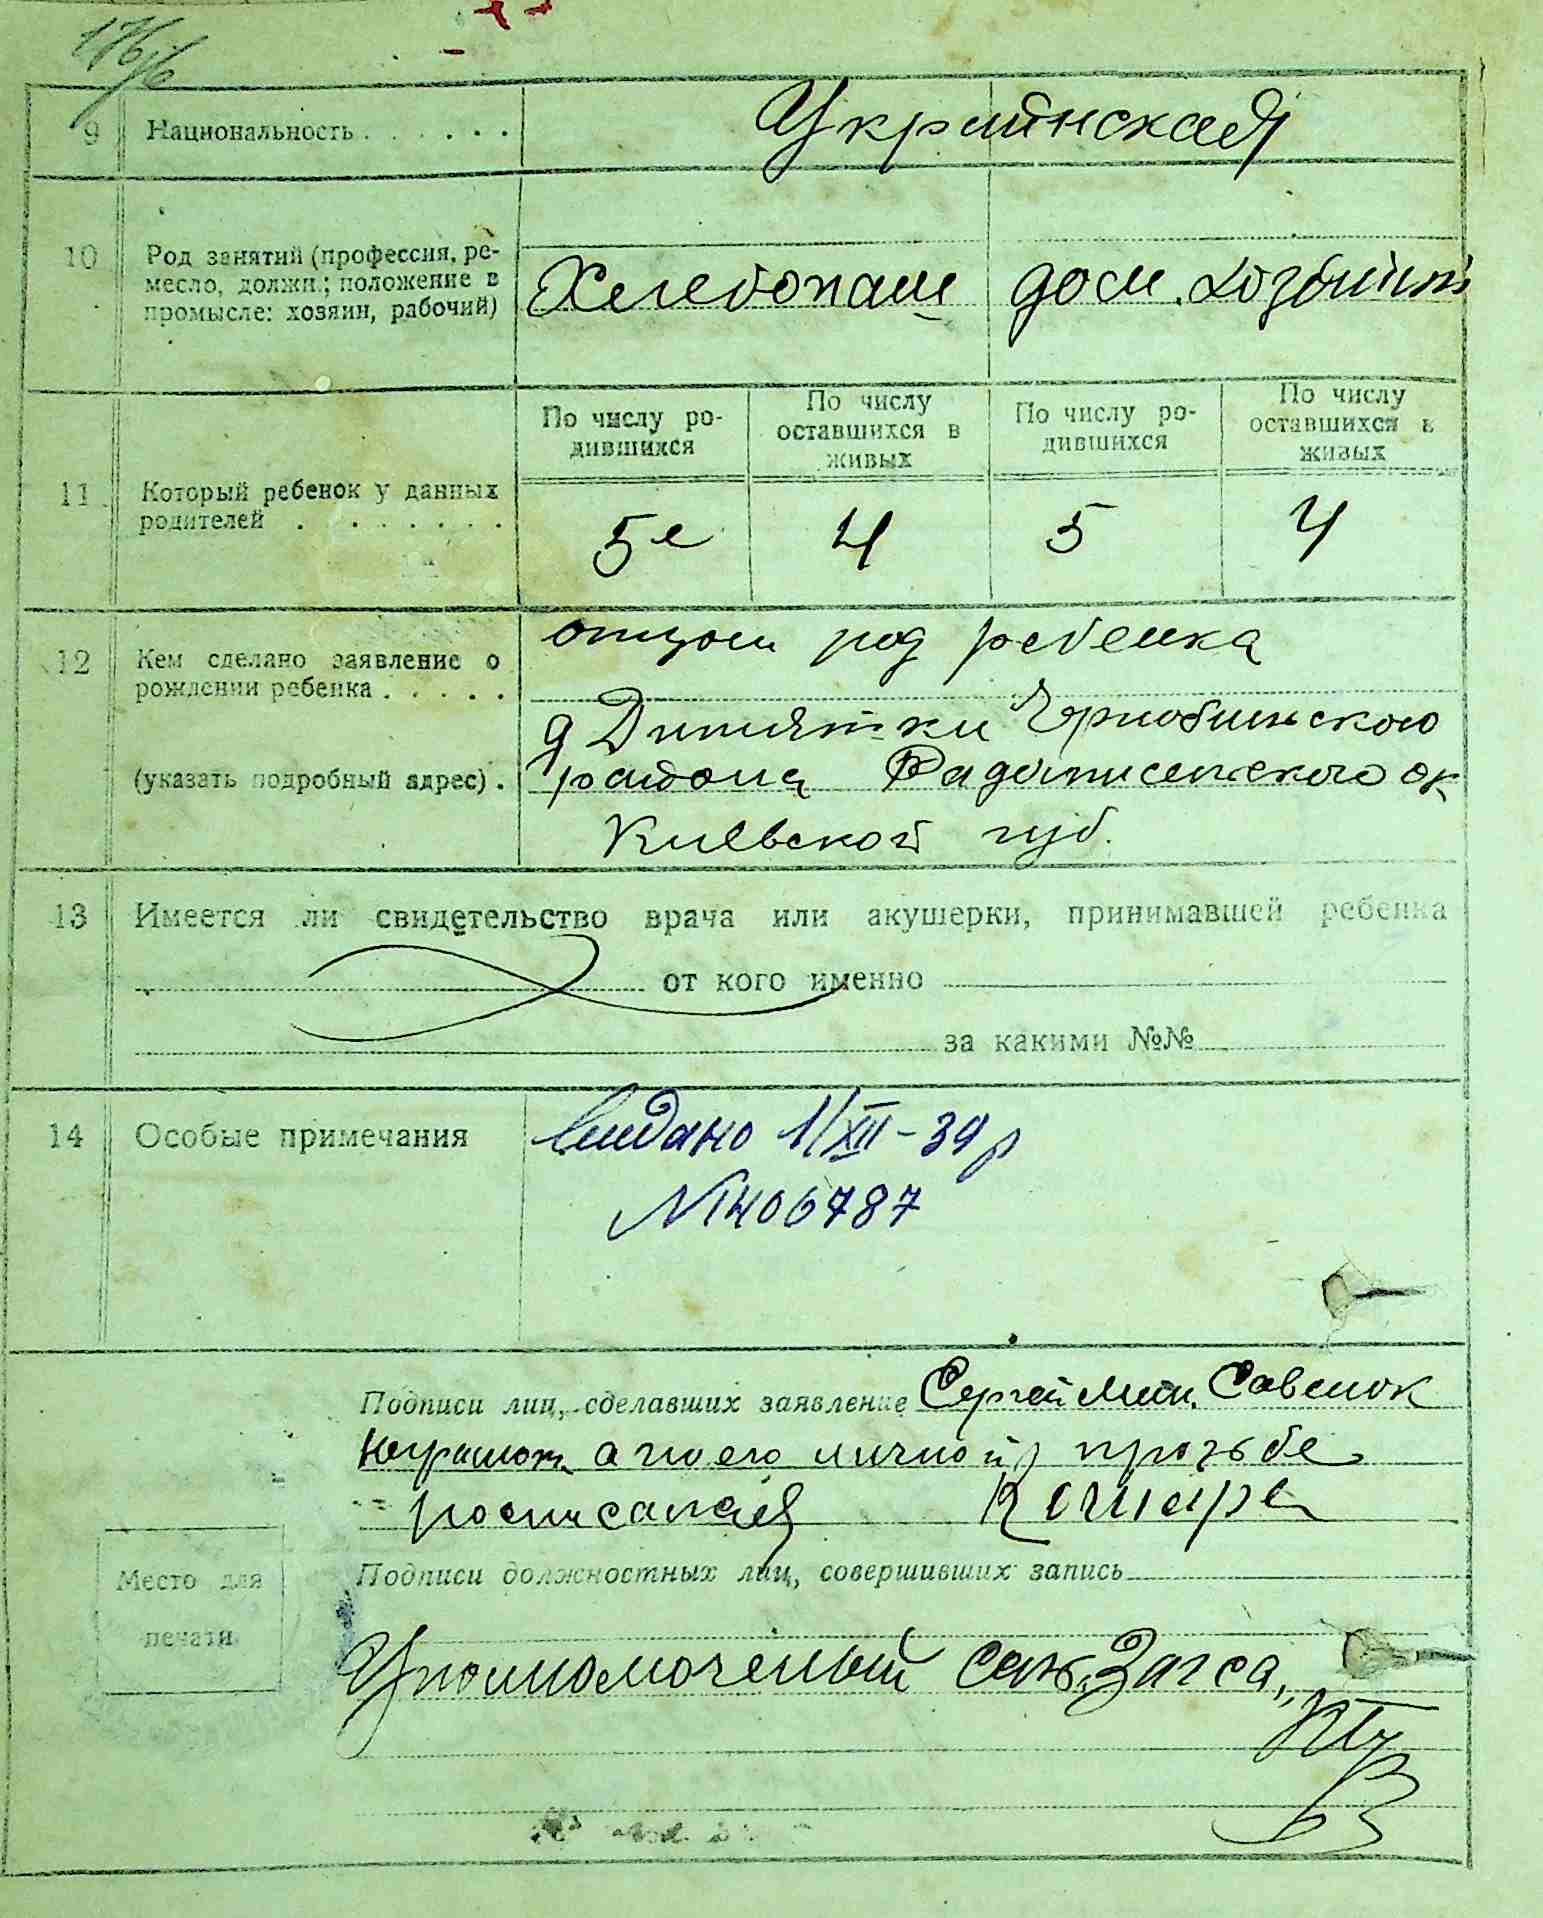 176/6
9 Национальность . . . . . . Украинская
10 Род занятий (профессия, ре-
месло, должн.; положение в
промысле: хозяин, рабочий)
Хлебопаш дом. хозяит
По числу ро-
дившихся
По числу
оставшихся в
живых
По числу ро-
дившихся
По числу
оставшихся в
живых
11 Который ребенок у данных
родителей . . . . . . . .
5е 4 5 4
12 Кем сделано заявление о
рождении ребенка . . . . .
(указать подробный адрес) .
отцом род ребенка
д Дитятки Чернобильского
района Радомисельского ок
Киевской губ.
13 Имеется ли свидетельство врача или акушерки, принимавшей ребенка
от кого именно
за какими №№
14 Особые примечания
Видано 1/XII-39р
№1406787
Подписи лиц, сделавших заявление Сергей Мит. Савенок
неграмотн. а по его личной прозьбе
росписался
Подписи должностных лиц, совершивших запись
Место для
печати
Уполномоченый Загса